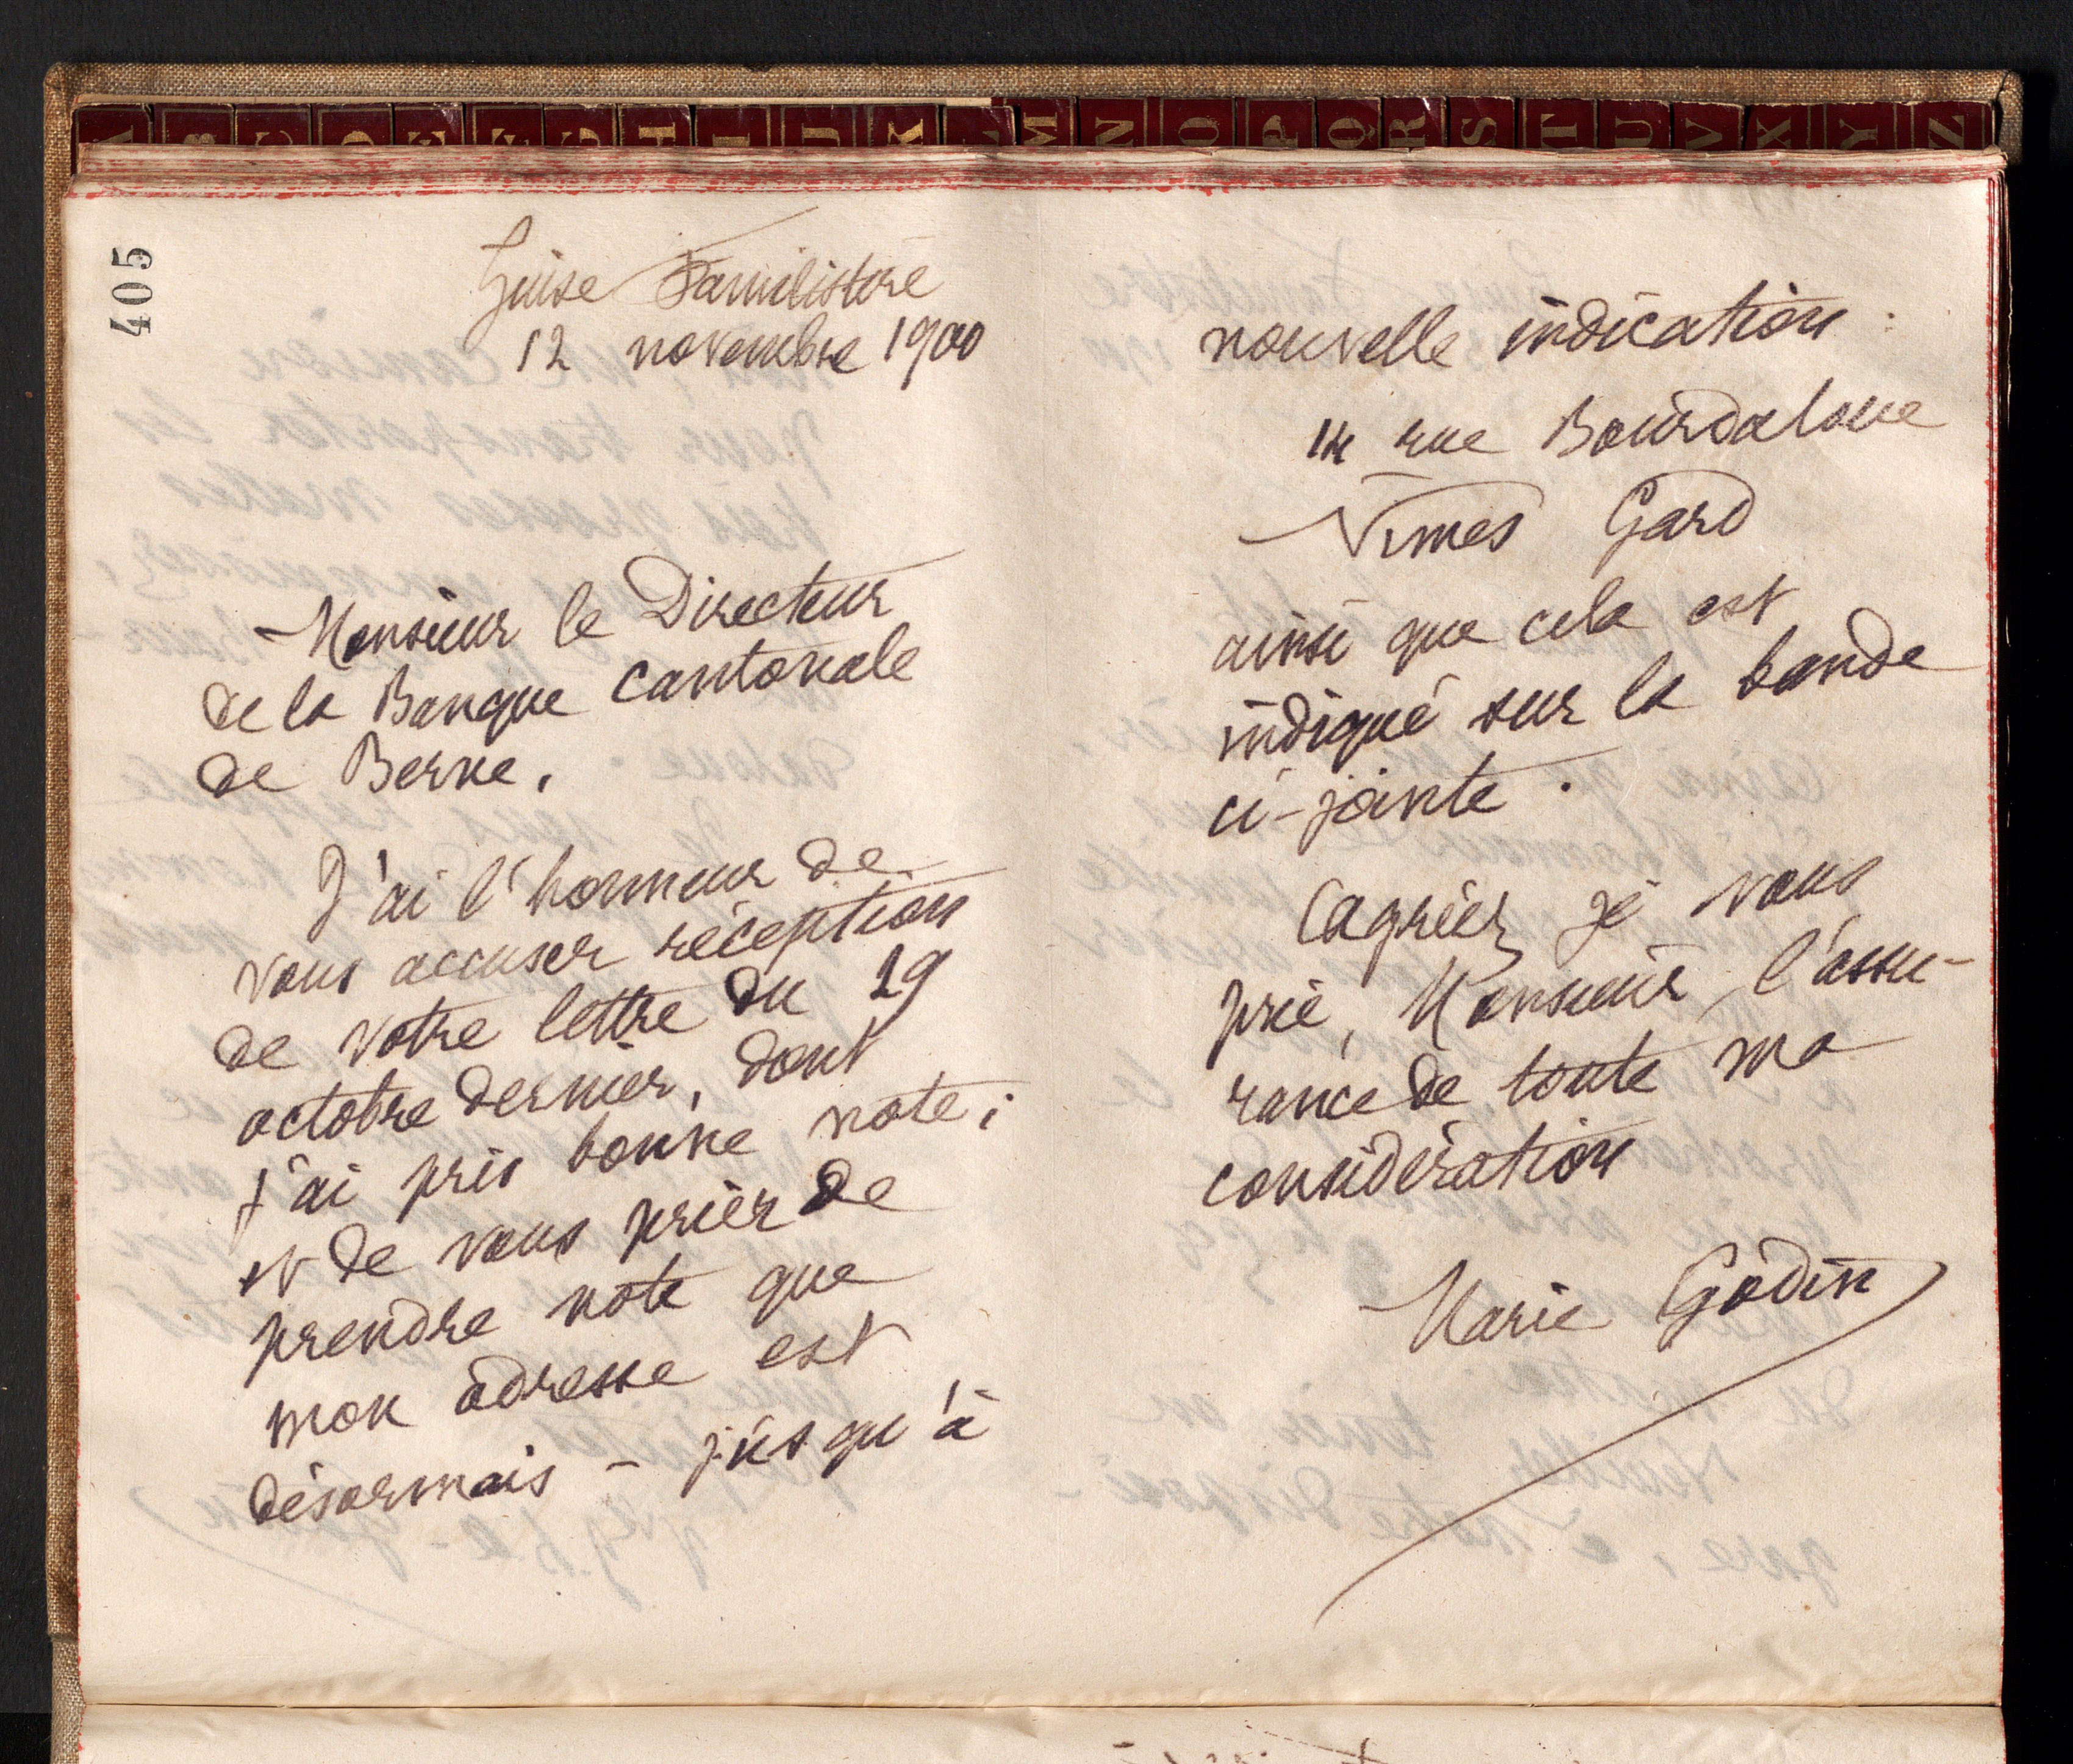 A B C D E F G H I J K L M N O P Q R S T U V X Y Z
405
Guise Familistère
12 novembre 1900
Monsieur le Directeur
de la Banque Cantonale
de Berne.
J'ai l'honneur de
vous accuser réception
de votre lettre du 29
octobre dernier, dont
j'ai pris bonne note ;
et de vous prier de
prendre note que
mon adresse est
désormais – jusqu'à
nouvelle indication :
14 rue Bourdaloue
Nîmes Gard
ainsi que cela est
indiqué sur la bande
ci-jointe.
Agréez, je vous
prie, Monsieur, l'assu-
rance de toute ma
considération
Marie Godin